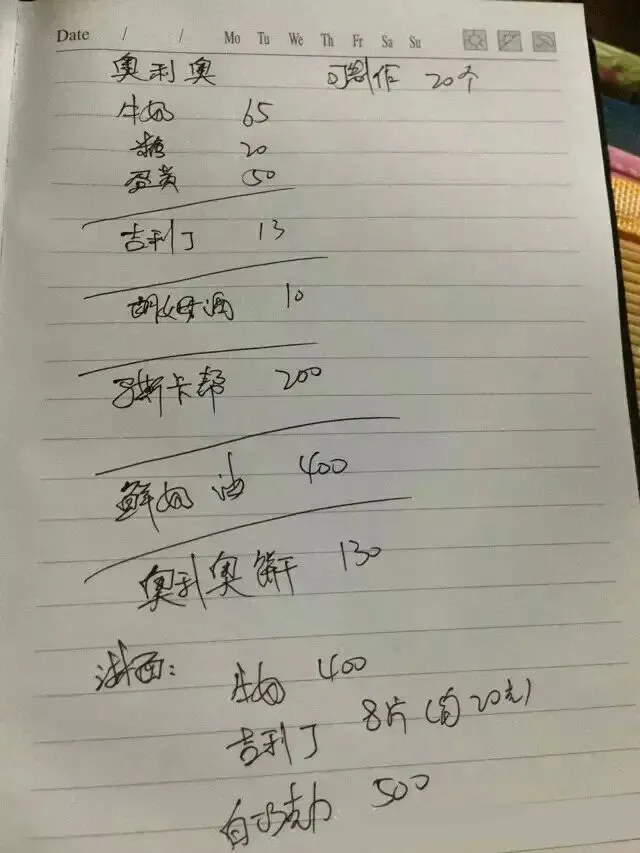 Date / / Mo Tu We Th Fr Sa Su
奥利奥 可制作 20个
牛奶 65
糖 20
蛋黄 50
吉利丁 13
朗姆酒 10
马斯卡邦 200
鲜奶油 400
奥利奥饼干 130
淋面：
牛奶 400
吉利丁 8片(自20克)
白巧克力 500